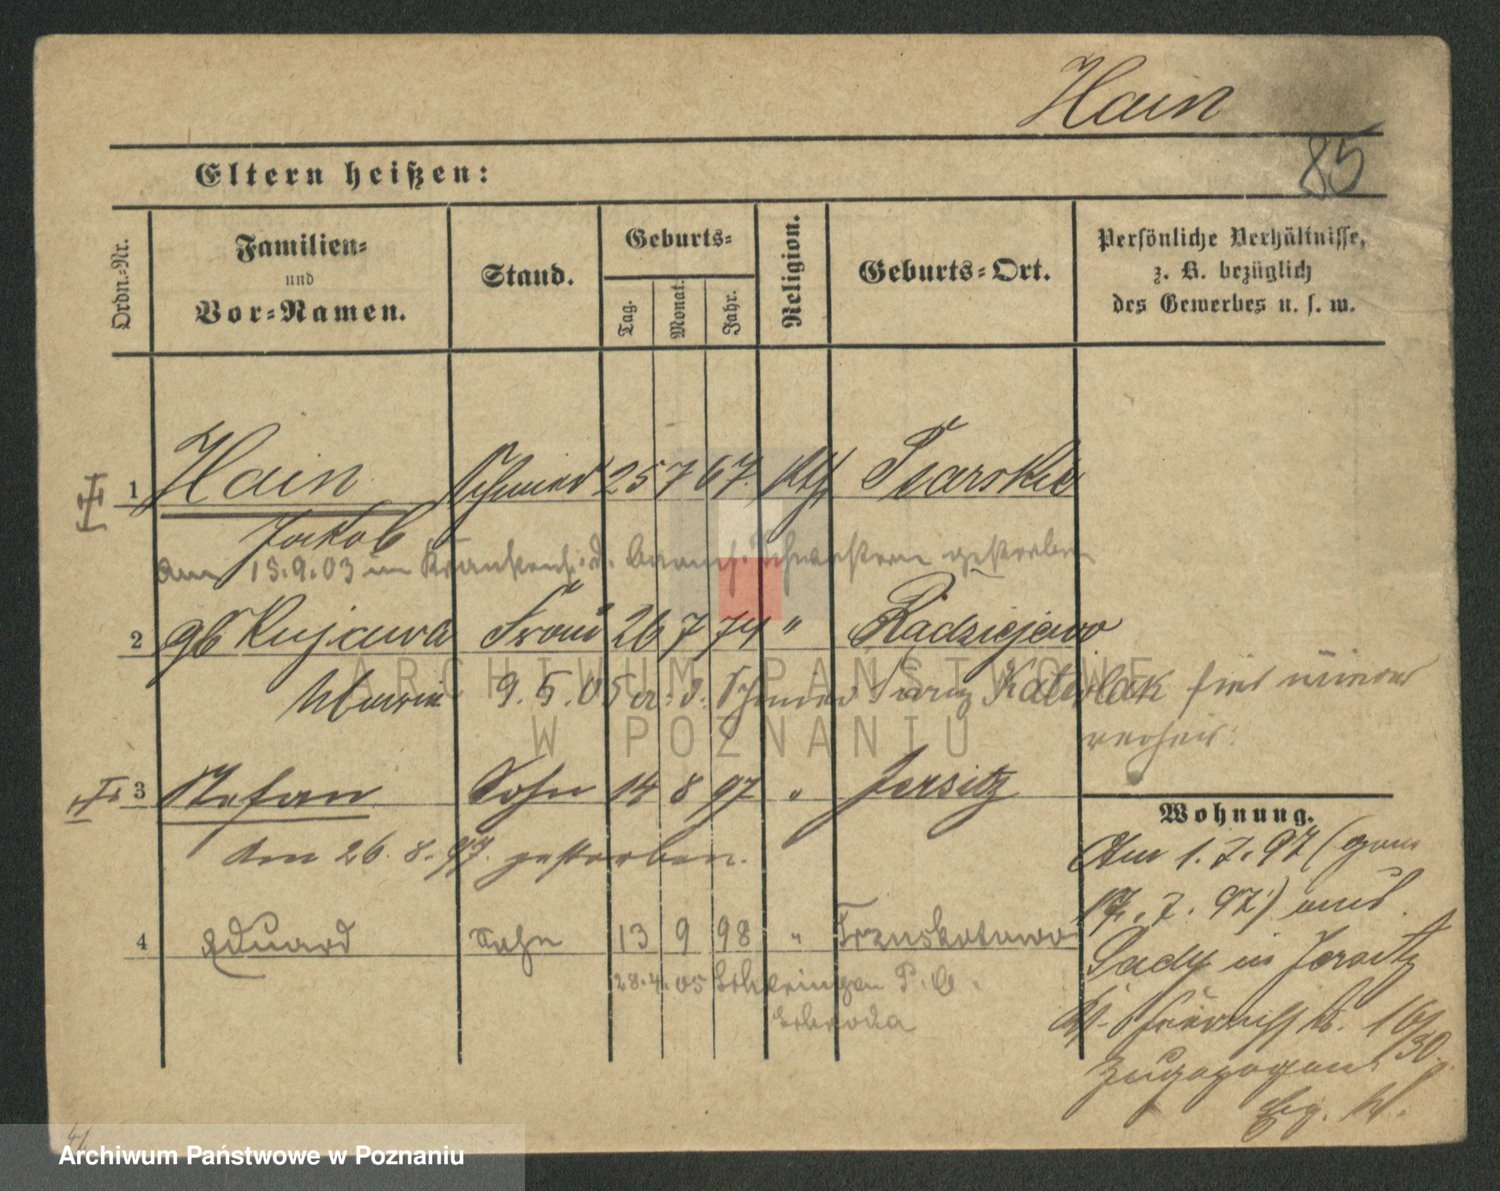 Hain
85
Eltern heißen:
Ordn.-Nr.
Familien-
und
Vor-Namen.
Stand.
Geburts-
Tag.
Monat.
Jahr.
Religion.
Geburts-Ort.
Persönliche Verhältnisse,
z. B. bezüglich
des Gewerbes u. s. w.
1 Hain Schmied 25 7 67. kth
Jakob
am 15.9.03 im Krankenh. d. barmh. Schwestern gestorben
2 gb Kujawa Frau 26 7 74 " Radziejewo
9.5.05 Schmied Franz
verheir.
3 Stefan Sohn 14 8 97 " Jersitz
Am 26.8.97. gestorben.
4 Eduard Sohn 13 9 98 " Trzuskotowo
28.4.05
Schroda
Wohnung.
Am 1.7.97 (gem
17.7.97) aus
Sady in Jersitz
16/30
zugezogen
ARCHIWUM PAŃSTWOWE
W POZNANIU
Archiwum Państwowe w Poznaniu